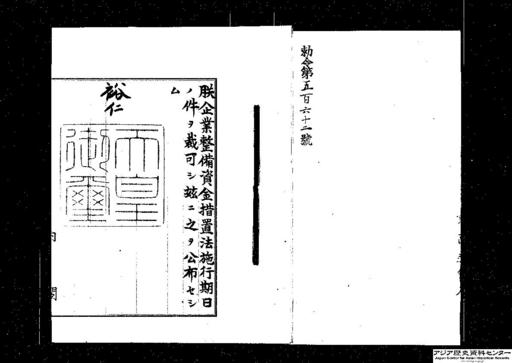 勅令第五百六十二號
朕企業整備資金措置法施行期日
ノ件ヲ裁可シ玆ニ之ヲ公布セシ
ム
裕仁
天皇御璽
内閣
アジア歴史資料センター
Japan Center for Asian Historical Records